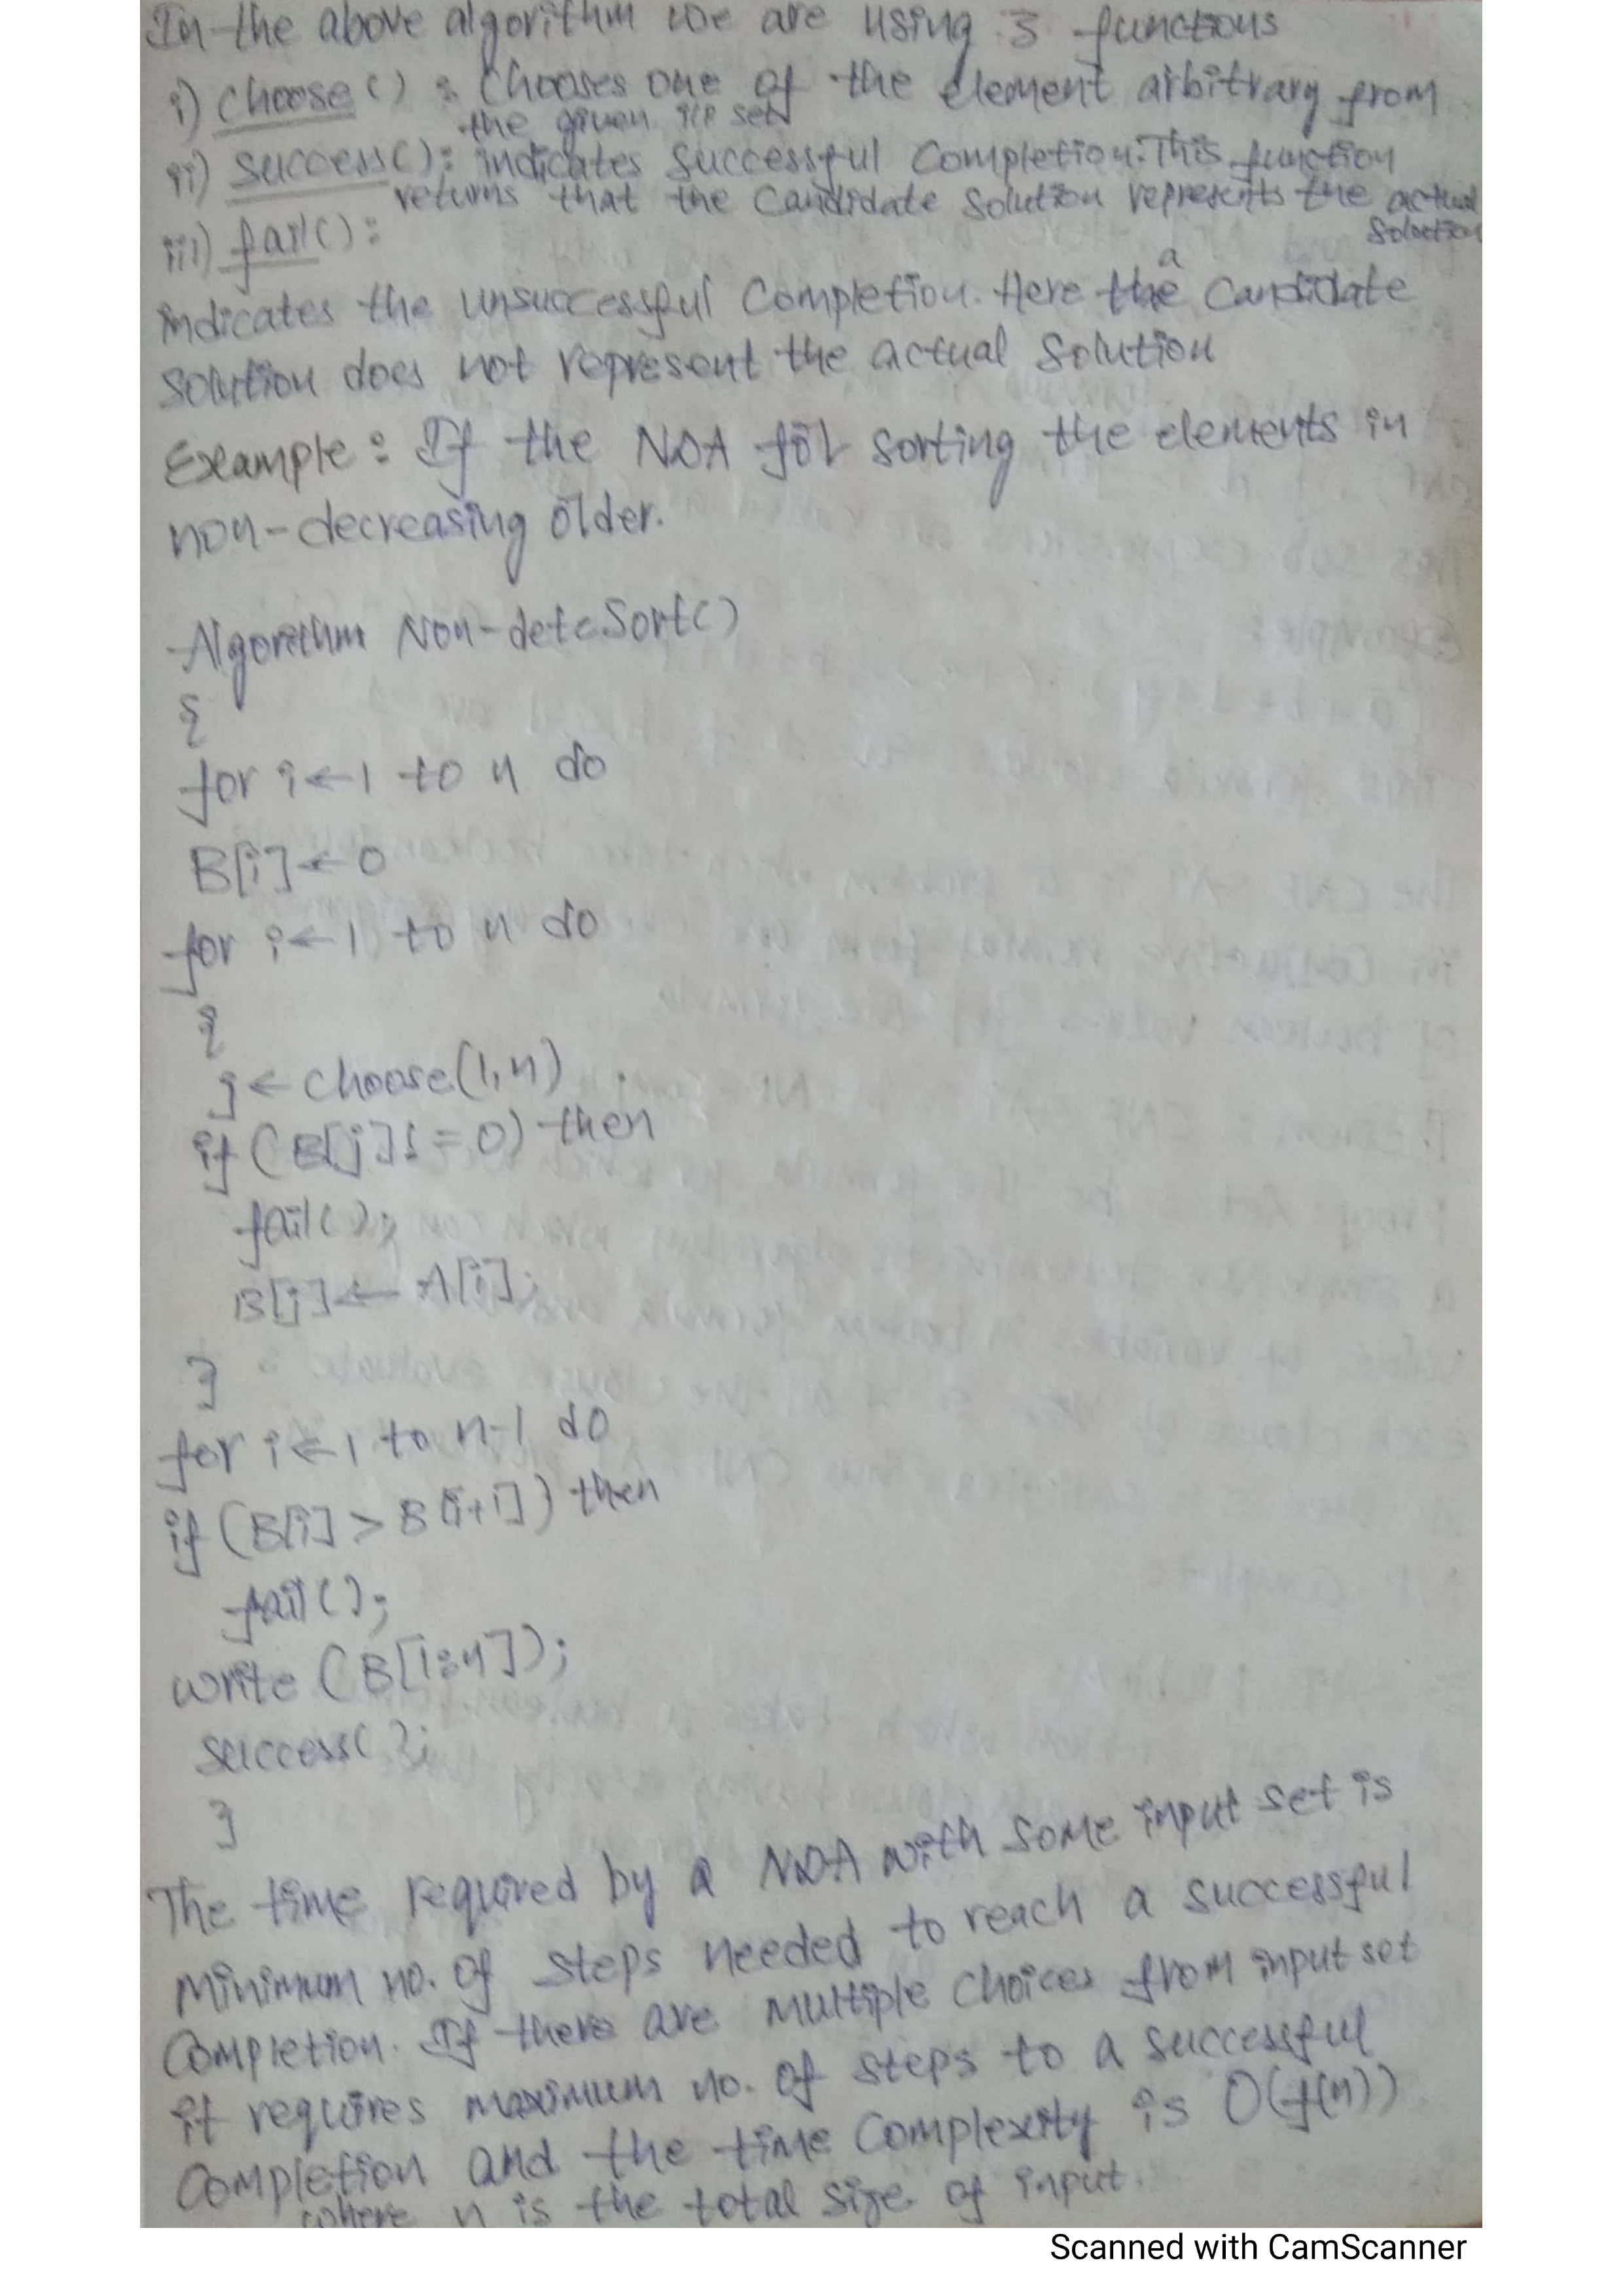 In the above algorithm we are using 3 functions
i) choose() : Chooses one of the element arbitrary from
the given i/p set
ii) success(): indicates successful Completion. This function
returns that the Candidate Solution represents the actual
Solution
iii) fail():
a
indicates the unsuccessful Completion. Here the Candidate
Solution does not represent the actual Solution
Example : If the NDA for sorting the elements in
non-decreasing older.
Algorithm Non-deteSort()
{
for i←1 to n do
B[i]←0
for i←1 to n do
{
j← choose(1,n)
if (B[j]!=0) then
fail();
B[j]← A[i];
}
for i←1 to n-1 do
if (B[i] > B[i+1]) then
fail();
write (B[1:n]);
success();
}
The time required by a NDA with some input set is
Minimum no. of steps needed to reach a successful
Completion. If there are multiple choices from input set
it requires maximum no. of steps to a successful
Completion and the time Complexity is O(f(n))
where n is the total size of input.
Scanned with CamScanner